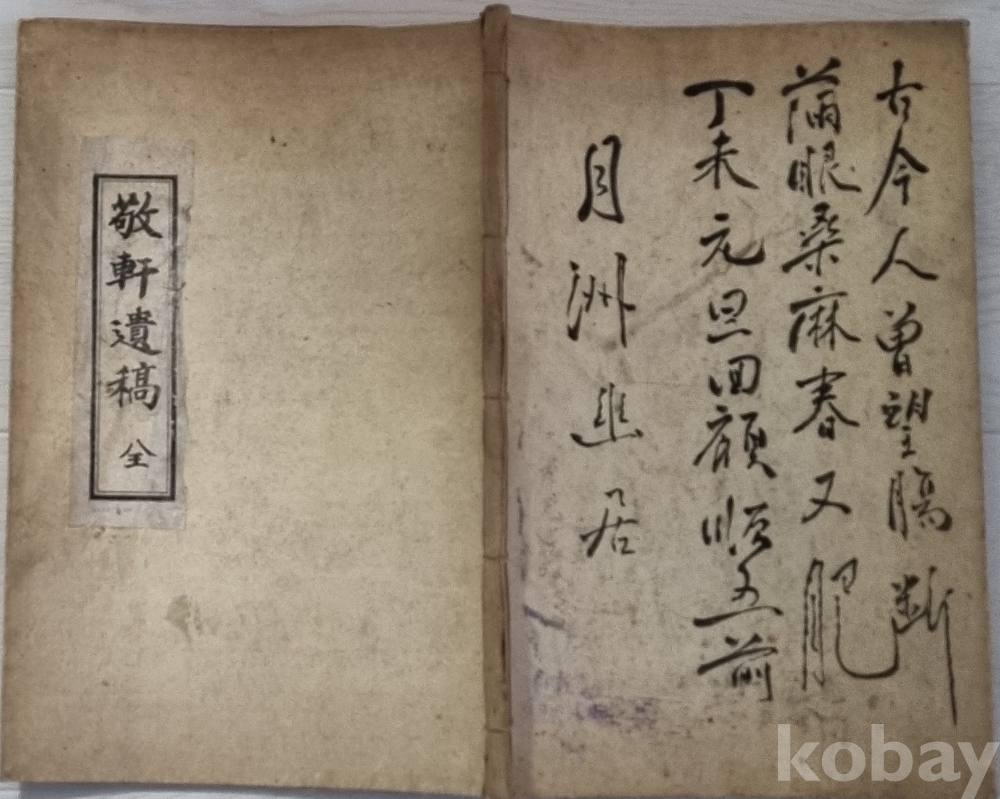 敬軒遺稿 全
古今人曾望腸斷
滿眼桑麻春又肥
丁未元旦回顧順五前
月洲進居
kobay